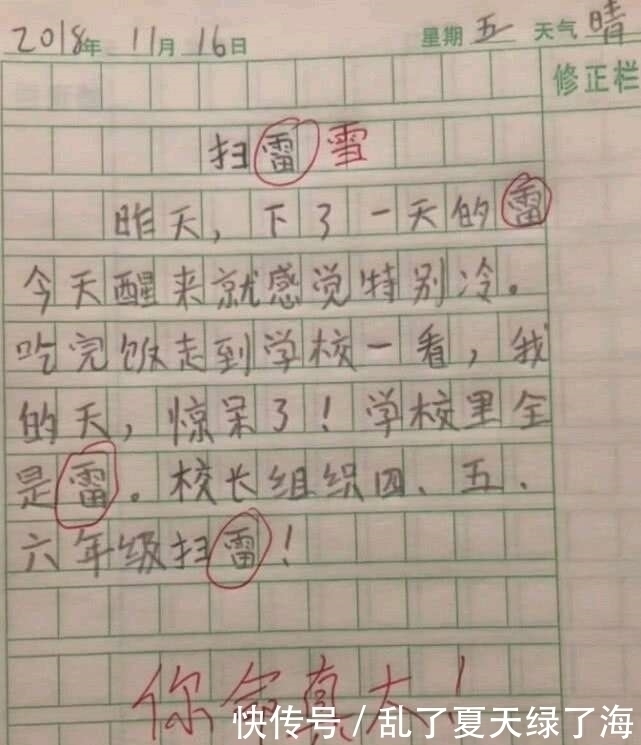 2018年 11月 16日 星期 五 天气 晴
修正栏
扫雷 雪
昨天，下了一天的雷
今天醒来就感觉特别冷。
吃完饭走到学校一看，我
的天，惊呆了！学校里全
是雷。校长组织四、五、
六年级扫雷！
你命真大！
快传号 / 乱了夏天绿了海